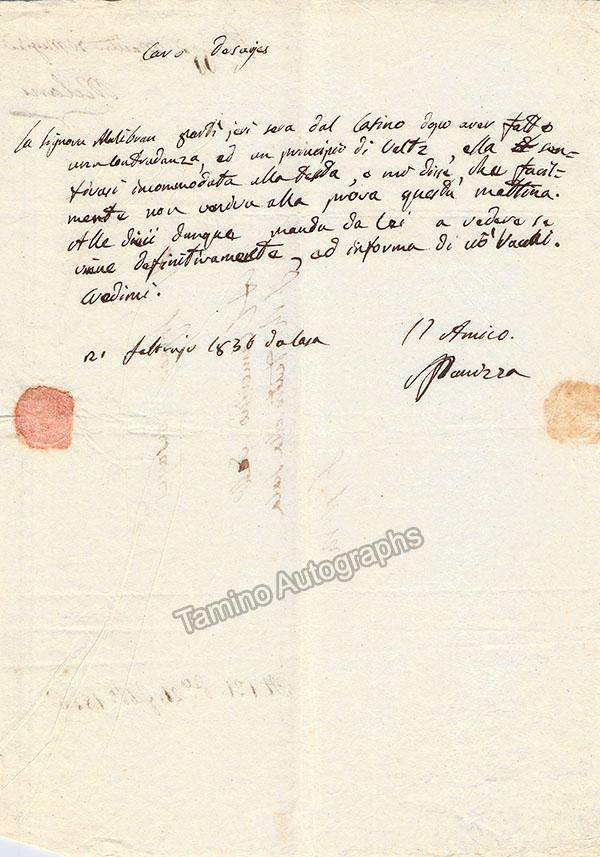 Caro Desajes
La Signora Malibran partì jeri sera dal Casino dopo aver fatto
una Contradanza, ed un principio di Valtz, ella sen-
tivasi incommodata alla testa, e mi disse, che facil-
mente non veniva alla prova questa mattina.
Alle dieci dunque manda da Lei a vedere se
viene definitivamente, ed informa di ciò
credimi.
21 Febbrajo 1836 da Casa
l'Amico.
Panizza
Tamino Autographs